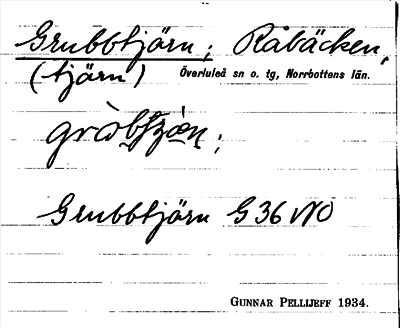 Grubbtjärn; Råbäcken,
(tjärn) Överluleå sn o. tg, Norrbottens län.
Grubbtjärn G 36 NO
GUNNAR PELLIJEFF 1934.